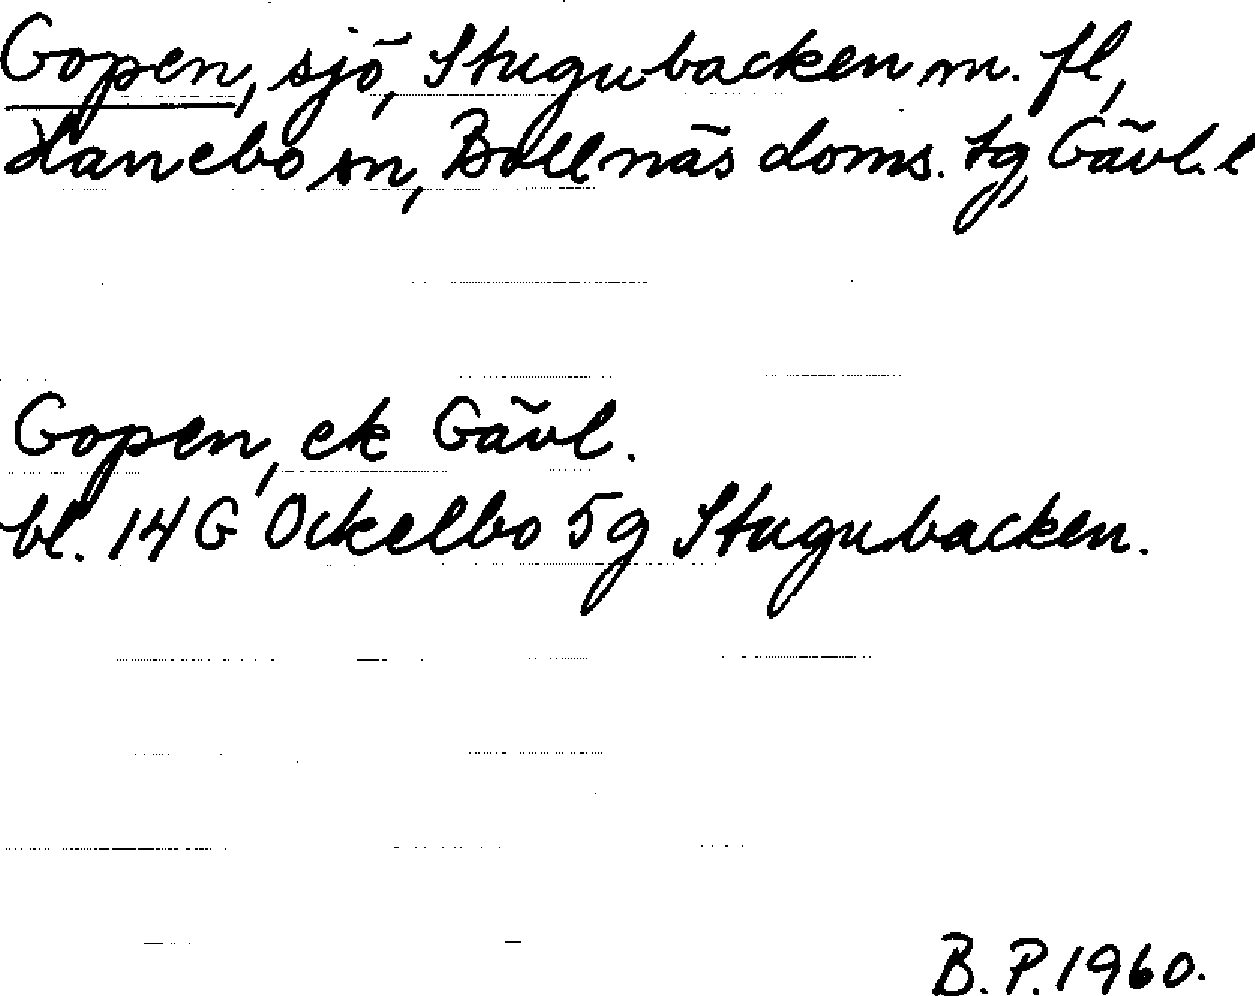 Gopen, sjö, Stugubacken m. fl,
Hanebo sn, Bollnäs doms. tg, Gävl. l
Gopen, ek Gävl.
bl. 14 G Ockelbo 5g Stugubacken.
B. P. 1960.